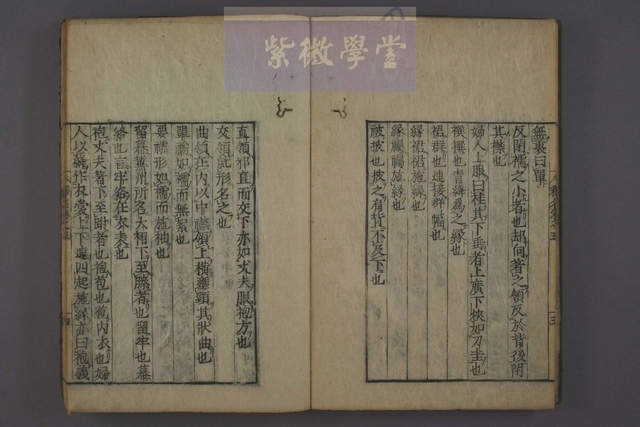 紫微學堂
無裏曰單
反閉襦之小者也却向著之領反於背後閉
其襟也
婦人上服曰袿其下垂者上廣下狹如刀圭也
襈撰也青絳爲之緣也
裙群也連接群幅也
緣裙裙施緣也
緣䙱䙱施緣也
帔披也披之肩背不及下也
直領邪直而交下亦如丈夫服袍方也
交領就形名之也
曲領在内以中襟領上橫壅頸其狀曲也
單襦如襦而無絮也
要襦形如襦而施袖也
留幕冀州所名大褶下至膝者也留牢也幕
絡也言牢絡在衣表也
袍丈夫著下至跗者也袍苞也苞内衣也婦
人以絳作衣裳上下連四起施緣亦曰袍義